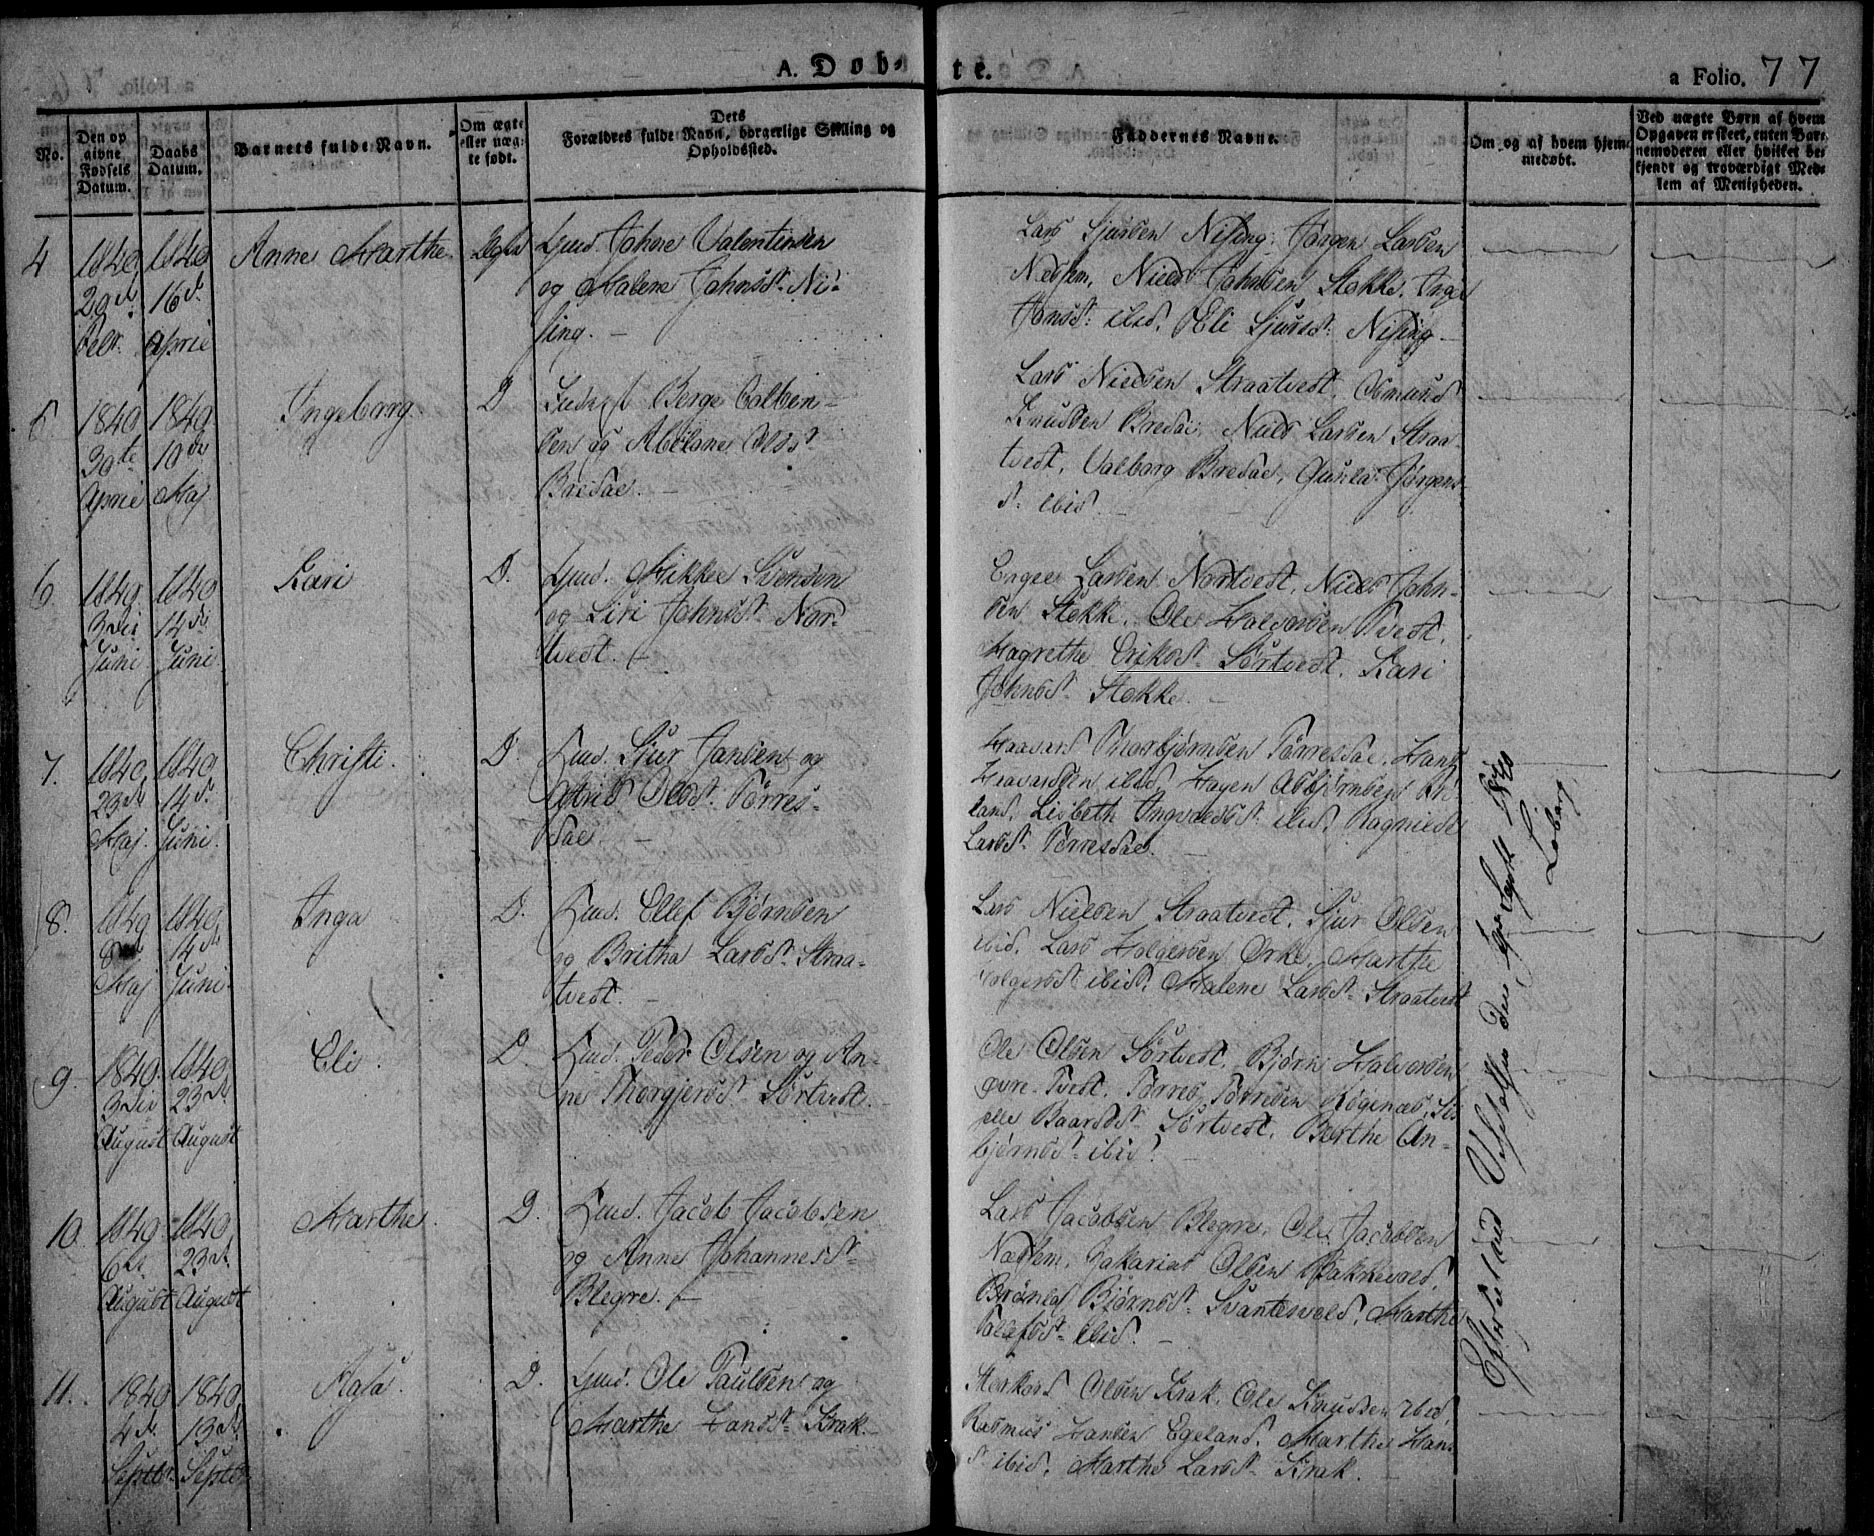 A. Døb- te.
a Folio. 77
No.
Den opgivne Fødsels Datum.
Daabs Datum.
Barnets fulde Navn.
Om ægte eller uægte født.
Dets Forældres fulde Navn, borgerlige Stilling og Opholdssted.
Faddernes Navne.
Om og af hvem hjemmedøbt.
Ved uægte Børn af hvem Opgaven er skeet, enten Barnemoderen eller hvilket bekjendt og troværdigt Medlem af Menigheden.
4
1840 29de Febr.
1840 16de April
Anne Marthe.
Ægte
Gmd. Johne Valentinsen
og Malene Johnsd. Ni-
sing.
Lars Sjursen Nising. Jørgen Larsen
Næshem, Niels Johnsen Stokke, Inger
Jonsd: ibid, Eli Sjursd: Nising
5.
1840 30te April
1840 10de Maj
Ingeborg.
D
Berge Colben-
sen og Abelone Olsd.
Bredal.
Lars Nielsen Straatvedt, Osmund
Knudsen Bredal, Niels Larsen Straa-
tvedt, Valborg Bredal, Gunla Jørgens-
d. ibid.
6.
1840 3die Juni
1840 14de Juni
Kari
D.
Gmd. Mikkel Svendsen
og Siri Johnsd. Nor-
tvedt.
Engel Larsen Nortvedt, Niels John-
sen Stokke, Ole Halvorsen Tvedt,
Magrethe Eriksd. Sørtvedt, Kari
Johnsd. Stokke.
7.
1840 23de Maj.
1840 14de Juni.
Christi.
D.
Hmd. Sjur Jansen og
Astrid Olsd. Tørres-
dal
Haavard Thorbjørnsen Tørresdal, Hans
Haavardsen ibid, Hagen Asbjørnsen
land, Lisbeth Ingvaldsd. ibid, Ragnilde
Larsd. Tørresdal.
8.
1840 8de Maj
1840 14de Juni.
Inga
D.
Hmd. Ellef Bjørnsen
og Britha Larsd. Straa-
tvedt.
Lars Nielsen Straatvedt, Sjur Olsen
ibid, Lars Holgersen Ørke, Marthe
Holgersd ibid, Malene Larsd. Straatvedt
9.
1840. 3die August
1840 23de August
Eli.
D.
Hmd. Peder Olsen og An-
ne Thorgjersd. Sørtvedt.
Ole Olsen Sørtvedt, Bjørn Halvorsen
øvre Tvedt, Tørres Tørresen Røgenæs,
Baardsd. Sørtvedt, Berthe An-
bjørnsd. ibid.
10.
1840. 6te August
1840 23de August
Marthe.
D.
Hmd. Jacob Jacobsen
og Anne Johannesd.
Blegre.
Lars Jacobsen Blegre, Ole Jacobsen
Næshem, Zakarias Olsen Bakkevold,
Brønla Bjørnsd. Svantesvold, Marthe
ibid.
11.
1840 4de Septbr.
1840 13de Septbr.
Aasa.
D.
Gmd. Ole Paulsen og
Marthe Hansd. Krak.
Sterkord Olsen Krak, Ole Knudsen ibid,
Rasmus Hansen Egeland, Marthe Hans
d ibid, Marthe Larsd. Krak.
Efterseet ved Visitatsen den 7de Septbr 1840
Loberg